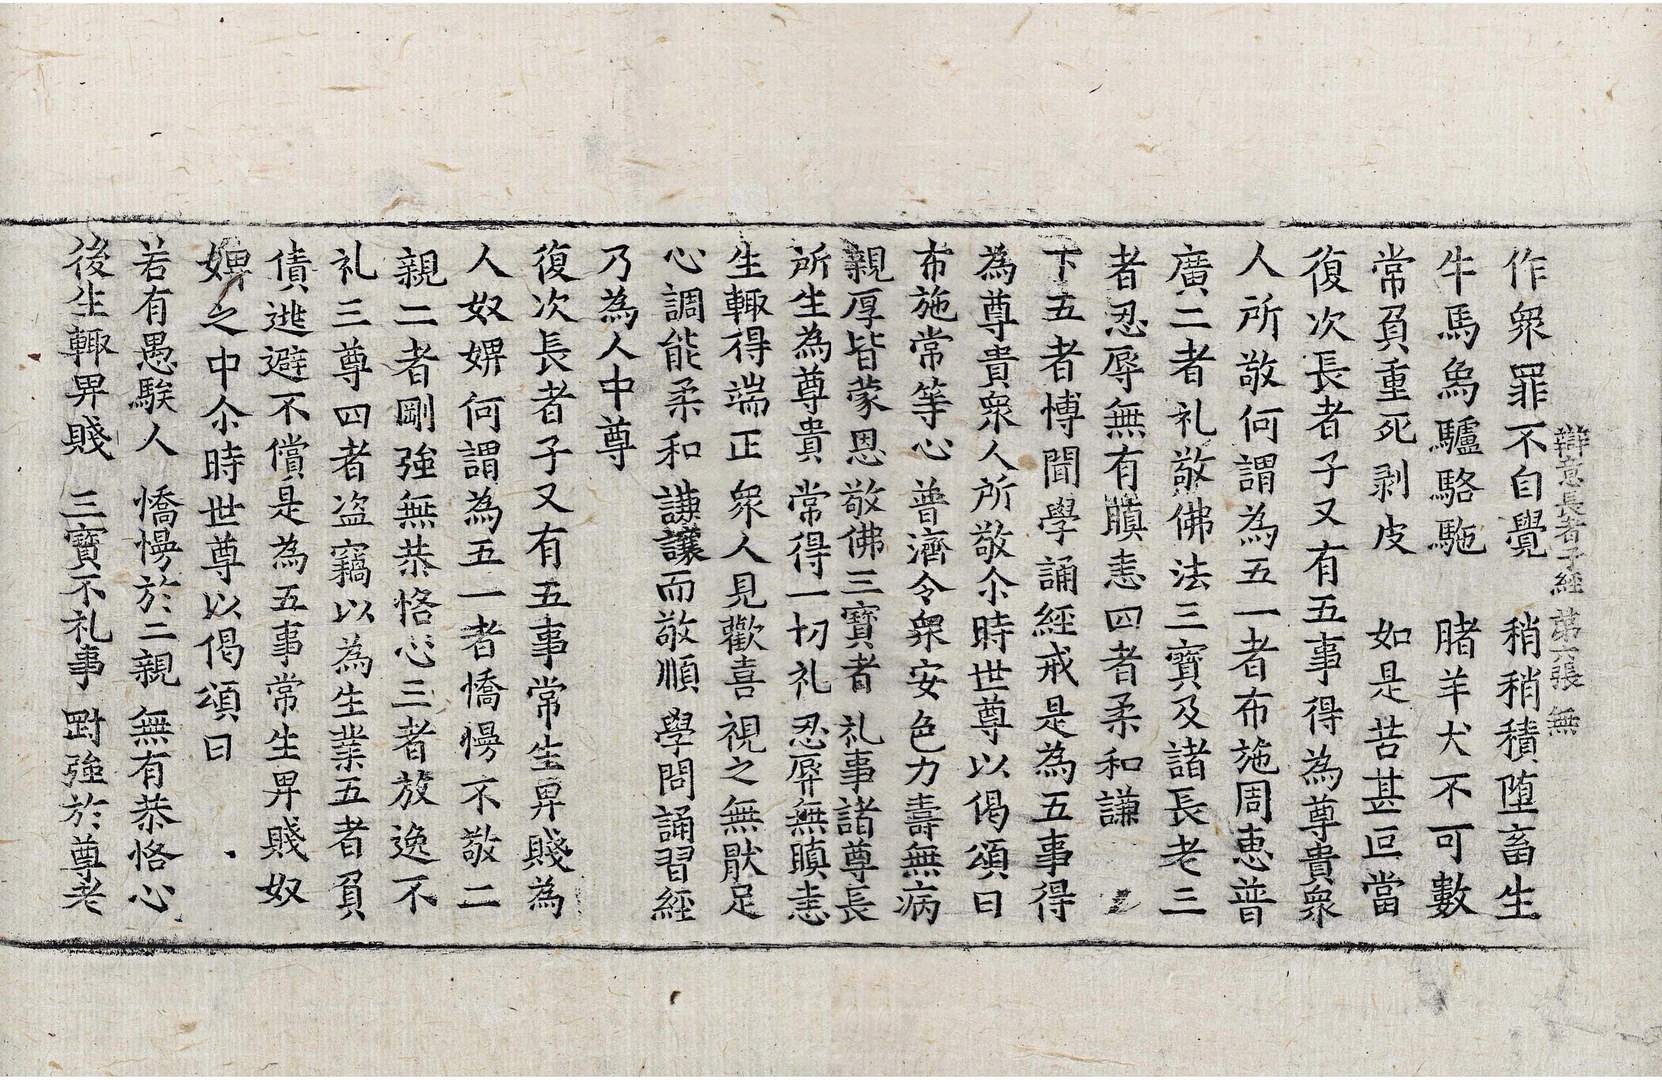 辯意長者子經 第六張 無
作衆罪不自覺 稍稍積墮畜生
牛馬鳥驢駱駞 賭羊犬不可數
常負重死剥皮 如是苦甚叵當
復次長者子又有五事得為尊貴衆
人所敬何謂為五一者布施周恵普
廣二者礼敬佛法三寶及諸長老三
者忍辱無有瞋恚四者柔和謙
下五者愽聞學誦經戒是為五事得
為尊貴衆人所敬尒時世尊以偈頌曰
布施常等心 普濟令衆安 色力壽無病
親厚皆蒙恩 敬佛三寶者 礼事諸尊長
所生為尊貴 常得一切礼 忍辱無瞋恚
生輙得端正 衆人見歡喜 視之無猒足
心調能柔和 謙讓而敬順 學問誦習經
乃為人中尊
復次長者子又有五事常生卑賤為
人奴婢何謂為五一者憍慢不敬二
親二者剛強無恭恪心三者放逸不
礼三尊四者盗竊以為生業五者負
債逃避不償是為五事常生卑賤奴
婢之中尒時世尊以偈頌曰
若有愚騃人 憍慢於二親 無有恭恪心
後生輙卑賤 三寶不礼事 剛強於尊老